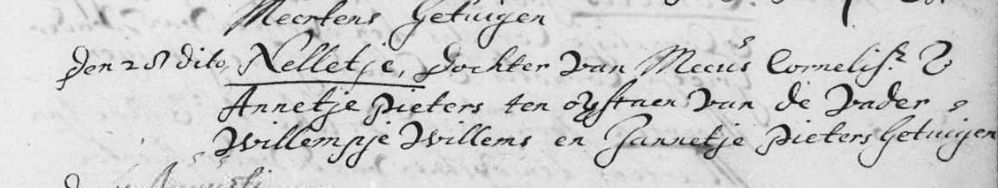 Meertens Getuigen
Den 28 dito Nelletje, Dochter van Meeus Cornelisz. &
Annetje Pieters ten oystaen van de Vader
Willempje Willems en Jannetje Pieters Getuigen